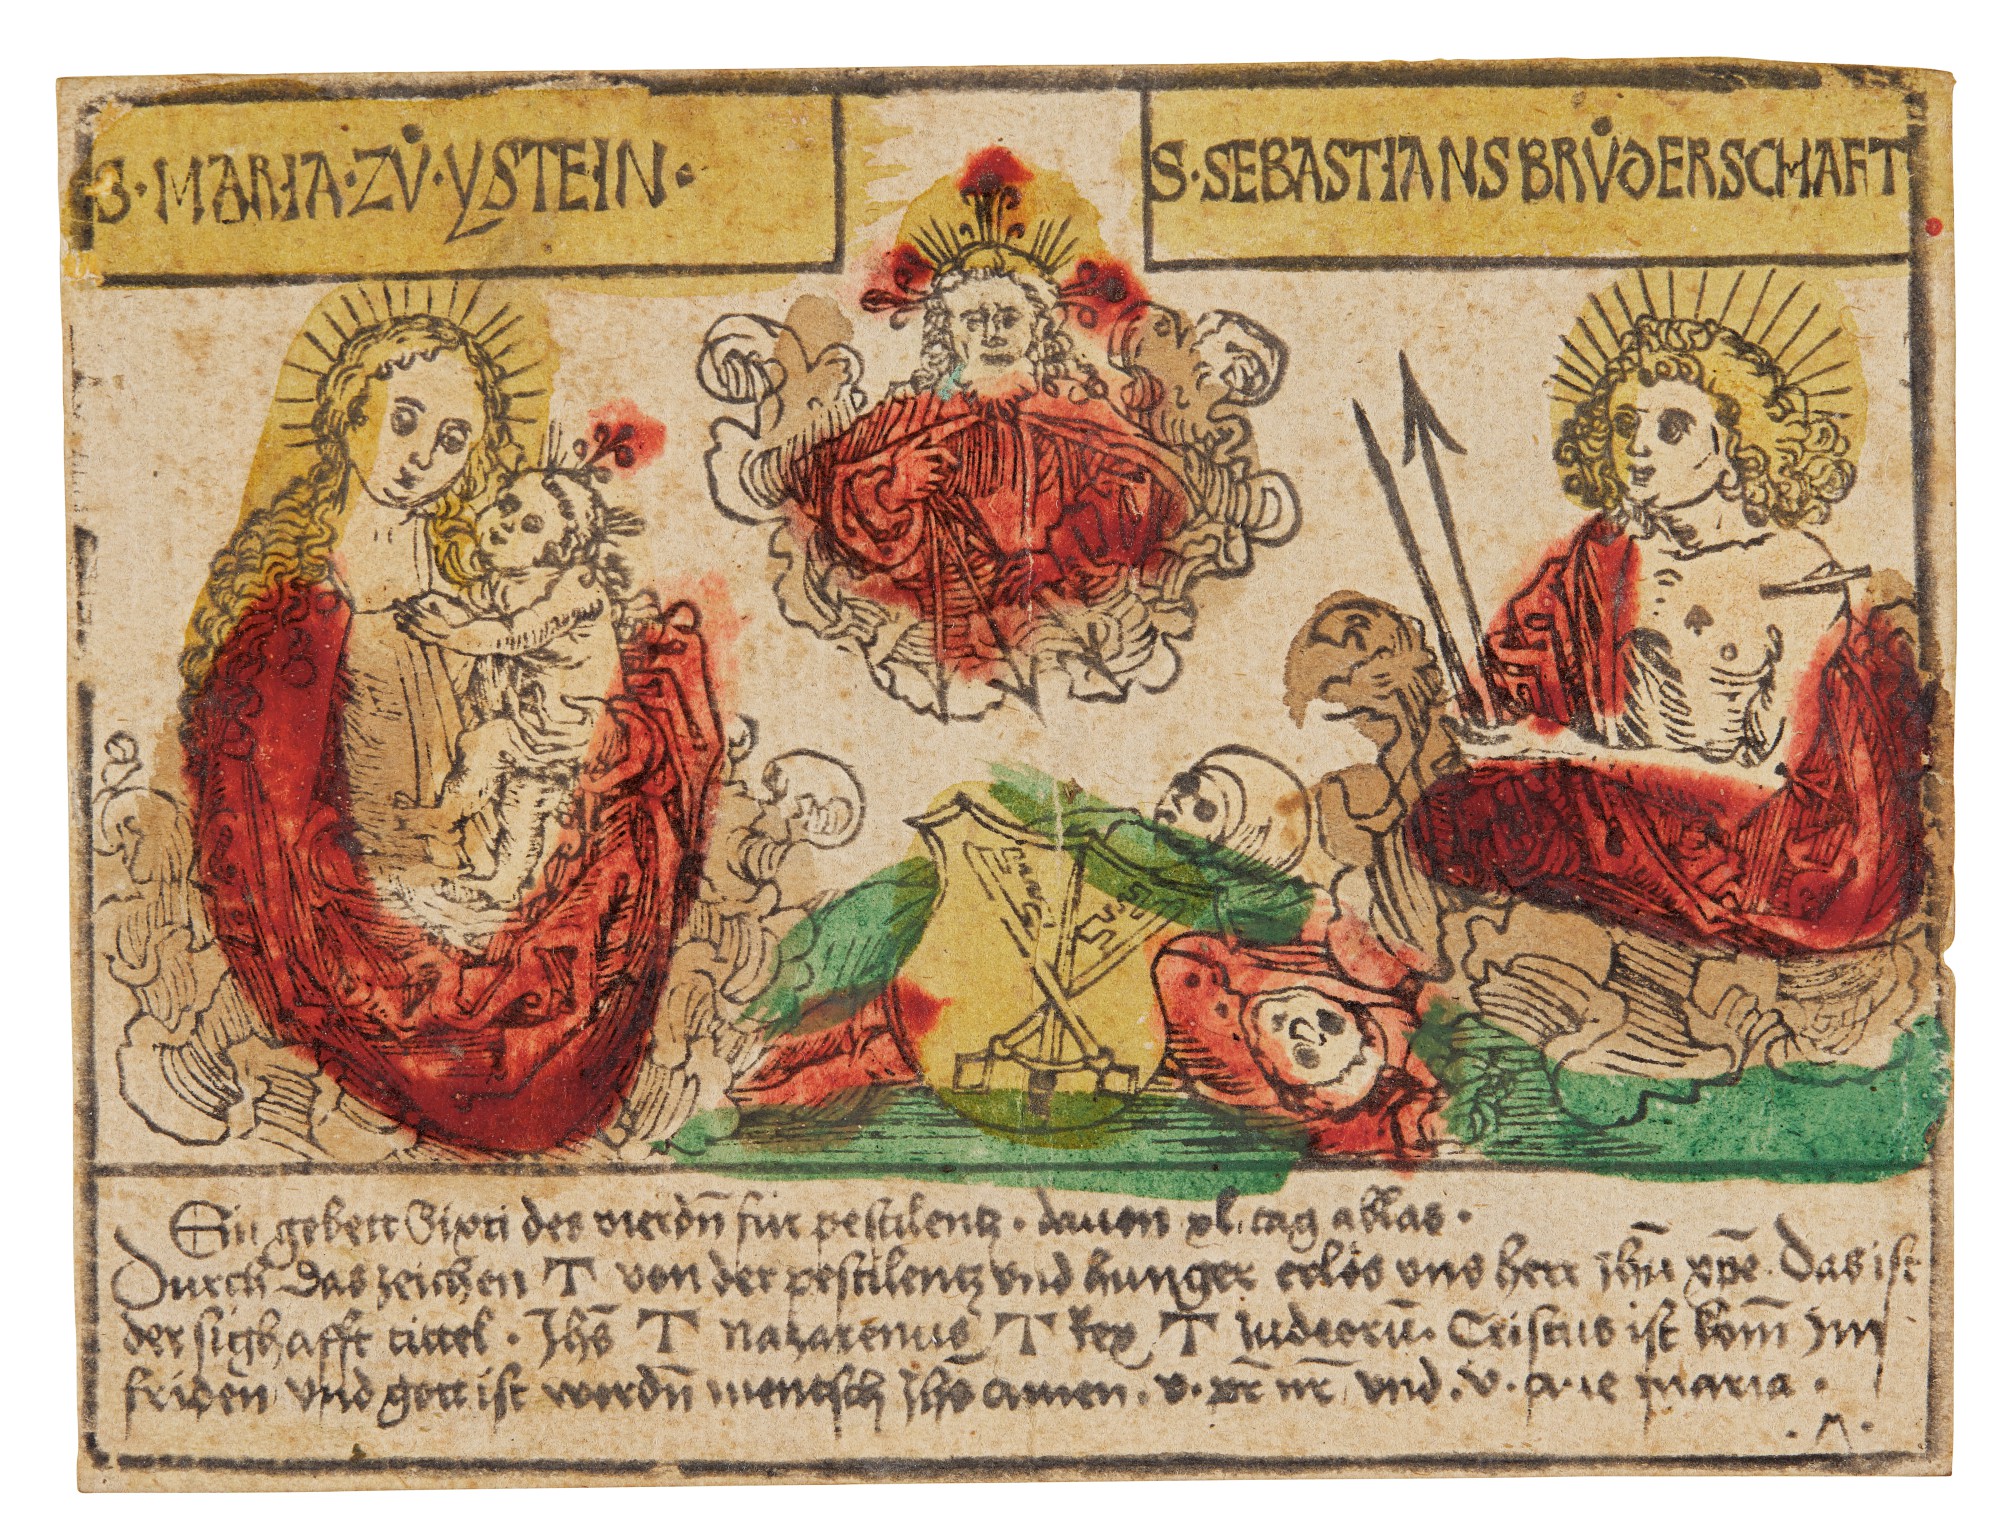 S · MARIA · ZŮ · YSTEIN ·
S · SEBASTIANS BRŮDERSCHAFT
Ein gebett Sixti des vierdn̄ für pestilentz · dauon xl. tag ablas ·
Durch das zeichen T von der pestilentz vnd hunger erlös vns herr ihū xp̄e · Das ist
der sighafft tittel · Jhs̄ T nazarenus T Rex T iudeorū · Cristus ist kom̄ Im
friden vnd gott ist wordn̄ mentsch Jhs̄ amen · v · pr̄ nr̄ vnd · v · aue maria ·
· M ·